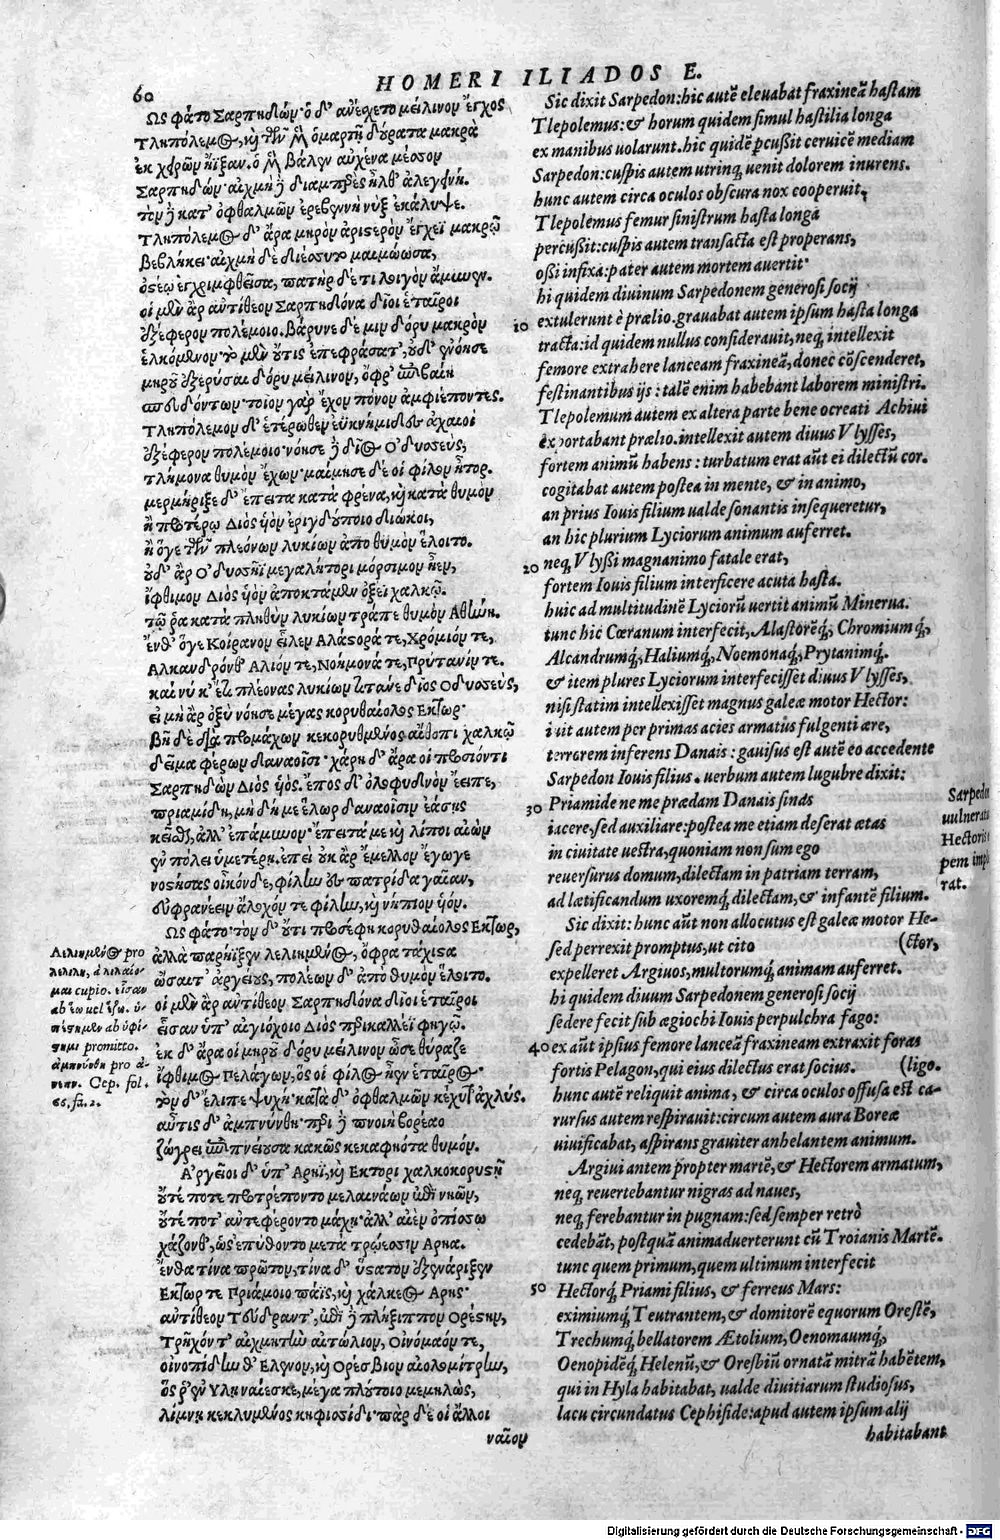 60
HOMERI ILIADOS E.
Ὣς φάτο Σαρπηδών· ὁ δ' ἀνέχετο μείλινον ἔγχος
Τληπόλεμος, καὶ τῶν μὲν ὁμαρτῇ δούρατα μακρὰ
ἐκ χειρῶν ἤϊξαν. ὁ μὲν βάλεν αὐχένα μέσον
Σαρπηδών· αἰχμὴ δὲ διαμπερὲς ἦλθ' ἀλεγεινή.
τὸν δὲ κατ' ὀφθαλμῶν ἐρεβεννὴ νὺξ ἐκάλυψε.
Τληπόλεμος δ' ἄρα μηρὸν ἀριστερὸν ἔγχεϊ μακρῷ
βεβλήκει· αἰχμὴ δὲ διέσσυτο μαιμώωσα,
ὀστέῳ ἐγχριμφθεῖσα, πατὴρ δ' ἔτι λοιγὸν ἄμυνεν.
οἱ μὲν ἄρ ἀντίθεον Σαρπηδόνα δῖοι ἑταῖροι
ἐξέφερον πολέμοιο. βάρυνε δέ μιν δόρυ μακρὸν
ἑλκόμενον· τὸ μὲν οὔτις ἐπεφράσατ', οὐδ' ἐνόησε
μηροῦ ἐξερύσαι δόρυ μείλινον, ὄφρ' ἐπιβαίη
σπευδόντων· τοῖον γὰρ ἔχον πόνον ἀμφιέποντες.
Τληπόλεμον δ' ἑτέρωθεν ἐϋκνήμιδες ἀχαιοὶ
ἐξέφερον πολέμοιο· νόησε δὲ δῖος Ὀδυσσεὺς,
τλήμονα θυμὸν ἔχων· μαίμησε δέ οἱ φίλον ἦτορ.
μερμήριξε δ' ἔπειτα κατὰ φρένα, καὶ κατὰ θυμὸν
ἢ προτέρω Διὸς υἱὸν ἐριγδούποιο διώκοι,
ἢ ὅγε τῶν πλεόνων λυκίων ἀπὸ θυμὸν ἕλοιτο.
οὐδ' ἄρ Ὀδυσσῆϊ μεγαλήτορι μόρσιμον ἦεν,
ἴφθιμον Διὸς υἱὸν ἀποκτάμεν ὀξέϊ χαλκῷ.
τῷ ῥα κατὰ πληθὺν λυκίων τράπε θυμὸν Ἀθήνη.
ἔνθ' ὅγε Κοίρανον εἷλεν Ἀλάστορά τε, Χρόμιόν τε,
Ἄλκανδρόνθ' Ἅλιόν τε, Νοήμονά τε, Πρύτανίν τε.
καὶ νύ κ' ἔτι πλέονας λυκίων κτάνε δῖος Ὀδυσσεὺς,
εἰ μὴ ἄρ ὀξὺ νόησε μέγας κορυθαίολος Ἕκτωρ·
βῆ δὲ διὰ προμάχων κεκορυθμένος αἴθοπι χαλκῷ
δεῖμα φέρων δαναοῖσι· χάρη δ' ἄρα οἱ προσιόντι
Σαρπηδὼν Διὸς υἱὸς. ἔπος δ' ὀλοφυδνὸν ἔειπε,
πριαμίδη, μὴ δή με ἕλωρ δαναοῖσιν ἐάσῃς
κεῖσθαι, ἀλλ' ἐπάμυνον· ἔπειτά με καὶ λίποι αἰὼν
ἐν πόλει ὑμετέρῃ, ἐπεὶ οὐκ ἄρ ἔμελλον ἔγωγε
νοστήσας οἶκόνδε, φίλην ἐς πατρίδα γαῖαν,
εὐφρανέειν ἄλοχόν τε φίλην, καὶ νήπιον υἱόν.
Ὣς φάτο· τὸν δ' οὔτι προσέφη κορυθαίολος Ἕκτωρ,
ἀλλὰ παρήϊξεν λελιημένος, ὄφρα τάχιστα
ὤσαιτ' ἀργείους, πολέων δ' ἀπὸ θυμὸν ἕλοιτο.
οἱ μὲν ἄρ ἀντίθεον Σαρπηδόνα δῖοι ἑταῖροι
εἷσαν ὑπ' αἰγιόχοιο Διὸς περικαλλέϊ φηγῷ.
ἐκ δ' ἄρα οἱ μηροῦ δόρυ μείλινον ὦσε θύραζε
ἴφθιμος Πελάγων, ὅς οἱ φίλος ἦεν ἑταῖρος·
τὸν δ' ἔλιπε ψυχὴ· κατὰ δ' ὀφθαλμῶν κέχυτ' ἀχλύς.
αὖτις δ' ἀμπνύνθη· περὶ δὲ πνοιὴ βορέαο
ζώγρει ἐπιπνείουσα κακῶς κεκαφηότα θυμόν.
Ἀργεῖοι δ' ὑπ' Ἄρηϊ, καὶ Ἕκτορι χαλκοκορυστῇ
οὔτέ ποτε προτρέποντο μελαινάων ἐπὶ νηῶν,
οὔτέ ποτ' αὐτεφέροντο μάχῃ· ἀλλ' αἰὲν ὀπίσσω
χάζονθ', ὡς ἐπύθοντο μετὰ τρώεσσιν Ἄρηα.
ἔνθα τίνα πρῶτον, τίνα δ' ὕστατον ἐξενάριξεν
Ἕκτωρ τε Πριάμοιο πάϊς, καὶ χάλκεος Ἄρης·
ἀντίθεον Τεύθραντ', ἐπὶ δὲ πλήξιππον Ὀρέστην,
Τρῆχόν τ' αἰχμητὴν αἰτώλιον, Οἰνόμαόν τε,
οἰνοπίδην θ' Ἕλενον, καὶ Ὀρέσβιον αἰολομίτρην,
ὅς ῥ' ἐν Ὕλῃ ναίεσκε, μέγα πλούτοιο μεμηλὼς,
λίμνῃ κεκλιμένος κηφισσίδι· πὰρ δέ οἱ ἄλλοι
ναῖον
Λελιημένος pro
λελιλη, à λιλαίο-
μαι cupio. εἷσαν
ab ἕω uel ἕζω.
promitto.
ἀμπνύνθη pro ἀ-
Cep. fol.
66. fa. 2.
Sic dixit Sarpedon: hic autē eleuabat fraxineā hastam
Tlepolemus: & horum quidem simul hastilia longa
ex manibus uolarunt. hic quidē percußit ceruicē mediam
Sarpedon: cuspis autem utrinq; uenit dolorem inurens.
hunc autem circa oculos obscura nox cooperuit,
Tlepolemus femur sinistrum hasta longa
percußit: cuspis autem transacta est properans,
oßi infixa: pater autem mortem auertit·
hi quidem diuinum Sarpedonem generosi socij
10 extulerunt è prælio. grauabat autem ipsum hasta longa
tracta: id quidem nullus considerauit, neq; intellexit
femore extrahere lanceam fraxineā, donec cōscenderet,
festinantibus ijs: talē enim habebant laborem ministri.
Tlepolemum autem ex altera parte bene ocreati Achiui
exportabant prælio. intellexit autem diuus Vlysses,
fortem animū habens: turbatum erat aūt ei dilectū cor.
cogitabat autem postea in mente, & in animo,
an prius Iouis filium ualde sonantis insequeretur,
an hic plurium Lyciorum animum auferret.
20 neq; Vlyßi magnanimo fatale erat,
fortem Iouis filium interficere acuta hasta.
huic ad multitudinē Lyciorū uertit animū Minerua.
tunc hic Cœranum interfecit, Alastorēq;, Chromiumq;,
Alcandrumq;, Haliumq;, Noemonaq;, Prytanimq;.
& item plures Lyciorum interfecisset diuus Vlysses,
nisi statim intellexisset magnus galeæ motor Hector:
iuit autem per primas acies armatus fulgenti ære,
terrorem inferens Danais: gauisus est autē eo accedente
Sarpedon Iouis filius. uerbum autem lugubre dixit:
30 Priamide ne me prædam Danais sinas
iacere, sed auxiliare: postea me etiam deserat ætas
in ciuitate uestra, quoniam non sum ego
reuersurus domum, dilectam in patriam terram,
ad lætificandum uxoremq; dilectam, & infantē filium.
Sic dixit: hunc aūt non allocutus est galeæ motor He-
sed perrexit promptus, ut cito (ctor,
expelleret Argiuos, multorumq; animam auferret.
hi quidem diuum Sarpedonem generosi socij
sedere fecit sub ægiochi Iouis perpulchra fago:
40 ex aūt ipsius femore lanceā fraxineam extraxit foras
fortis Pelagon, qui eius dilectus erat socius. (ligo.
hunc autē reliquit anima, & circa oculos offusa est ca-
rursus autem respirauit: circum autem aura Boreæ
uiuificabat, aspirans grauiter anhelantem animum.
Argiui antem propter martē, & Hectorem armatum,
neq; reuertebantur nigras ad naues,
neq; ferebantur in pugnam: sed semper retrò
cedebāt, postquā animaduerterunt cū Troianis Martē.
tunc quem primum, quem ultimum interfecit
50 Hectorq; Priami filius, & ferreus Mars:
eximiumq; Teutrantem, & domitorē equorum Orestē,
Trechumq; bellatorem Ætolium, Oenomaumq;,
Oenopidēq; Helenū, & Oresbiū ornatā mitrā habētem,
qui in Hyla habitabat, ualde diuitiarum studiosus,
lacu circundatus Cephiside: apud autem ipsum alij
habitabant
Sarpedo
uulnerat
Hectoris
pem imp
rat.
Digitalisierung gefördert durch die Deutsche Forschungsgemeinschaft - DFG